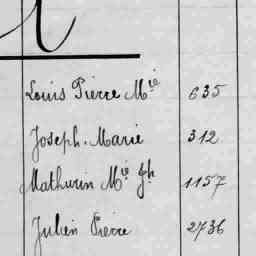 Louis Pierre Mie 635
Joseph. Marie 312
Mathurin Mie Jh 1157
Julien Pierre 2736